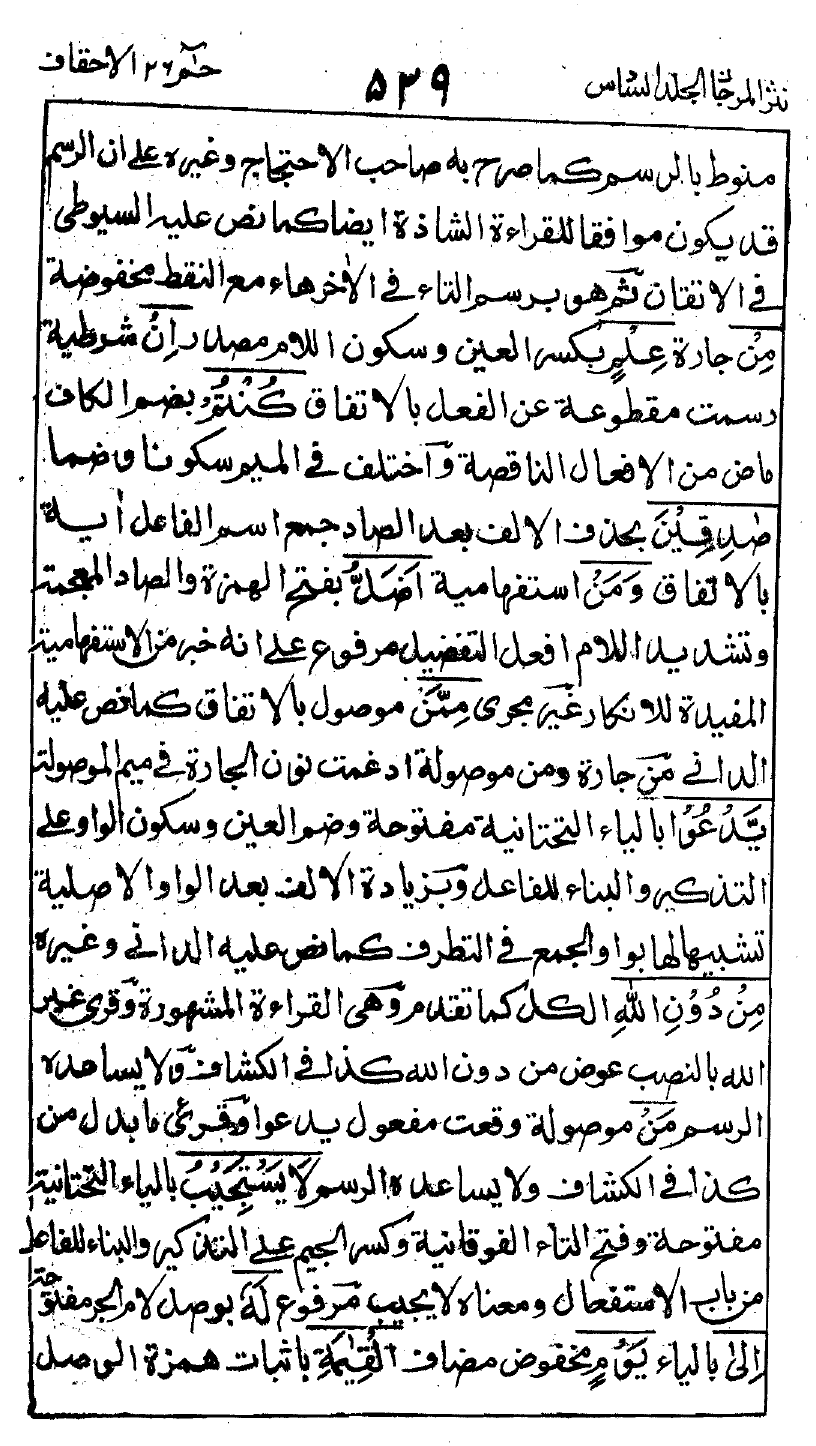 نثر المرجان الجلد السادس ٥٣٩ حٰم ٢٦ الاحقاف
منوط بالرسم كما صرح به صاحب الاحتجاج وغيره على ان الرسم
قد يكون موافقا للقراءة الشاذة ايضا كما نص عليه السيوطى
فى الاتقان ثم هو برسم التاء فى الاٰخر هاء مع النقط مخفوضة
مِنْ جارة عِلْمٍ بكسر العين وسكون اللام مصدر اِنْ شرطية
رسمت مقطوعة عن الفعل بالاتفاق كُنْتُمْ بضم الكاف
ماض من الافعال الناقصة وآختلف فى الميم سكونا وضما
صٰدِقِيْنَ بحذف الالف بعد الصاد جمع اسم الفاعل اٰية
بالاتفاق وَمَنْ استفهامية اَضَلُّ بفتح الهمزة والضاد المعجمة
وتشديد اللام افعل التفضيل مرفوع على انه خبر من الاستفهامية
المفيدة للانكار غير مجرى مِمَّنْ موصول بالاتفاق كما نص عليه
الدانى من جارة ومن موصولة ادغمت نون الجارة فى ميم الموصولة
يَّدْعُوْا بالياء التحتانية مفتوحة وضم العين وسكون الواو على
التذكير والبناء للفاعل وبزيادة الالف بعد الواو الاصلية
تشبيها لها بواو الجمع فى التطرف كما نص عليه الدانى وغيره
مِنْ دُوْنِ اللهِ الكل كما تقدم وهى القراءة المشهورة وقرئ غير
الله بالنصب عوض من دون الله كذا فى الكشاف ولا يساعده
الرسم مَنْ موصولة وقعت مفعول يدعوا وقرئ ما بدل من
كذا فى الكشاف ولا يساعده الرسم لَا يَسْتَجِيْبُ بالياء التحتانية
مفتوحة وفتح التاء الفوقانية وكسر الجيم على التذكير والبناء للفاعل
من باب الاستفعال ومعناه لا يجيب مرفوع لَهٗ بوصل لام الجر مفتوحة
اِلىٰ بالياء يَوْمِ مخفوض مضاف الْقِيٰمَةِ باثبات همزة الوصل